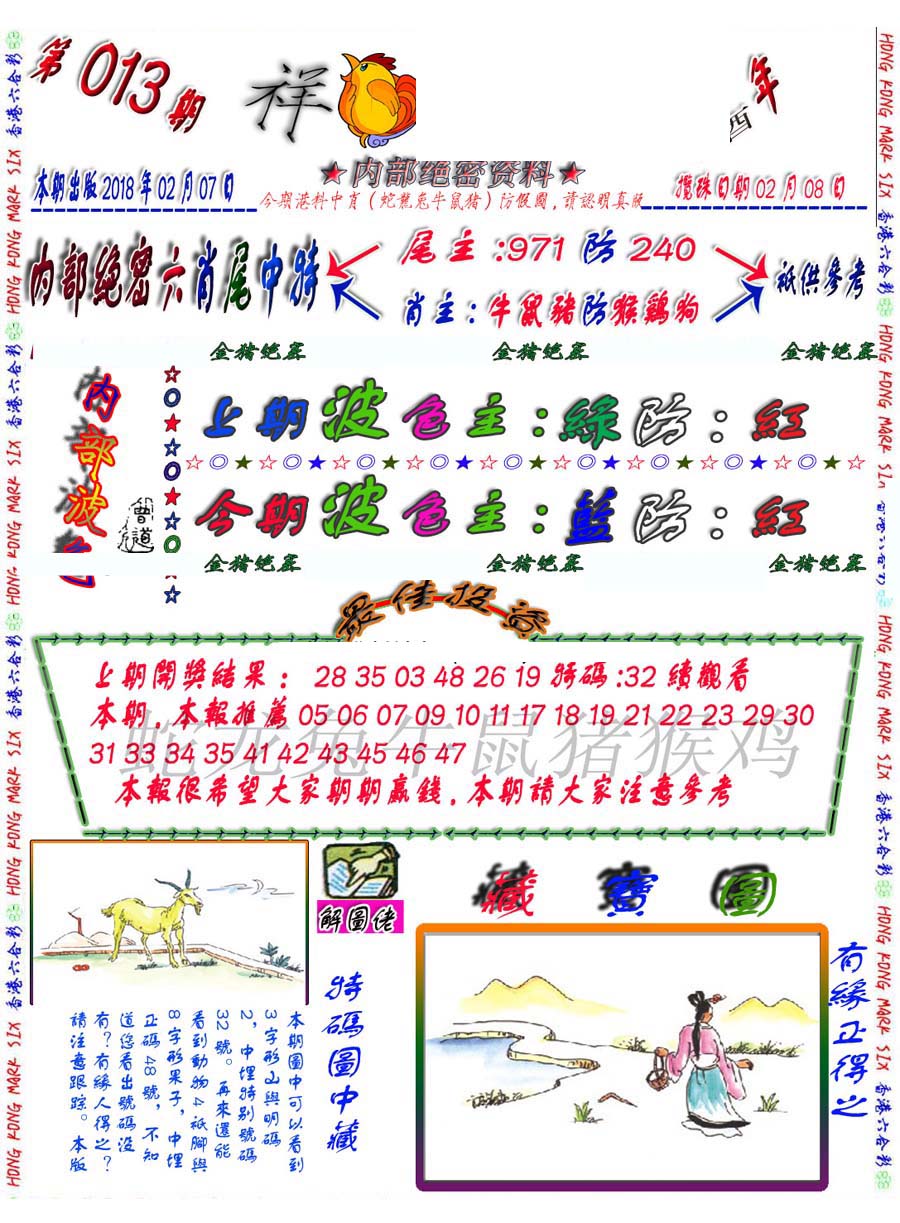 第013期
祥
酉年
本期出版2018年02月07日
★内部绝密资料★
今期港料中肖（蛇龍兔牛鼠猪）防假圖,請認明真版
攪珠日期02月08日
内部绝密六肖尾中特
尾主:971 防 240
肖主:牛鼠豬防猴鷄狗
祗供參考
金猪绝密 金猪绝密 金猪绝密
内部波色
曾道
上期波色主:綠防:紅
今期波色主:藍防:紅
金猪绝密 金猪绝密 金猪绝密
最佳投註
上期開獎結果: 28 35 03 48 26 19 特碼:32 續觀看
本期.本報推薦 05 06 07 09 10 11 17 18 19 21 22 23 29 30
31 33 34 35 41 42 43 45 46 47
蛇龙兔牛鼠猪猴鸡
本報很希望大家期期贏錢.本期請大家注意參考
解圖佬
藏寶圖
特碼圖中藏
本期圖中可以看到
3字形山與明碼
2,中埋特别號碼
32號。再來還能
看到動物4祇脚與
8字形果子,中埋
正碼48號,不知
道您看出號碼没
有?有緣人得之?
請注意跟踪。本版
有緣正得之
HONG KONG MARK SIX 香港六合彩
HONG KONG MARK SIX 香港六合彩
HONG KONG MARK SIX 香港六合彩
HONG KONG MARK SIX 香港六合彩
HONG KONG MARK SIX 香港六合彩
HONG KONG MARK SIX 香港六合彩
HONG KONG MARK SIX 香港六合彩